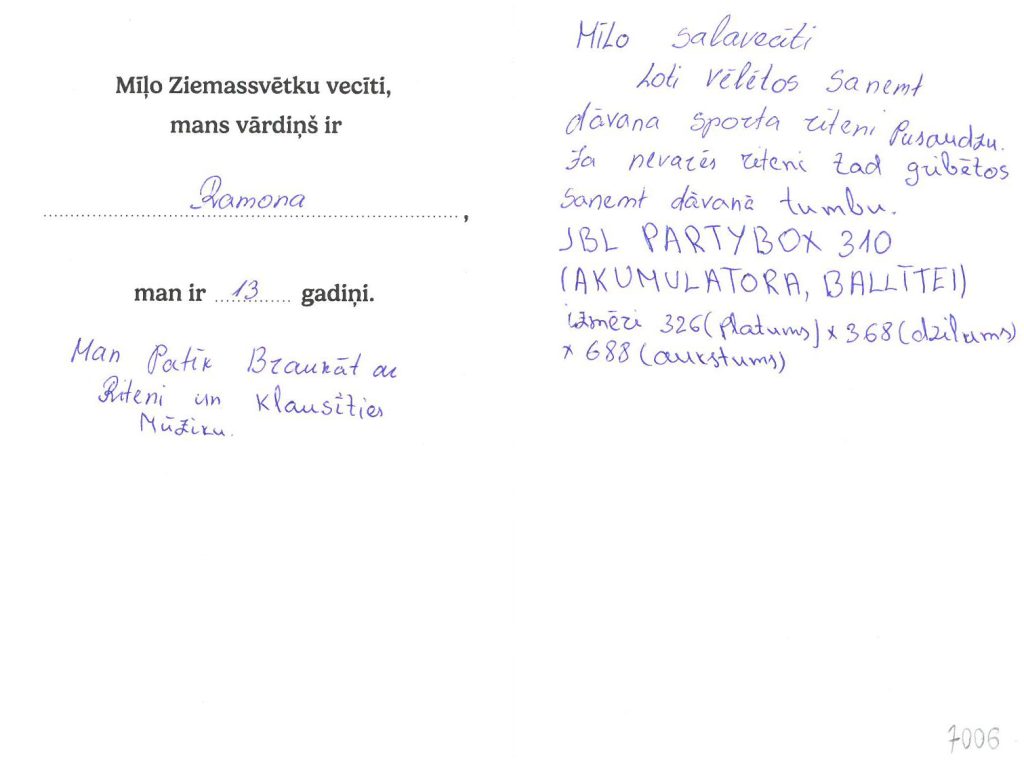 Mīļo Ziemassvētku vecīti,
mans vārdiņš ir
Ramona
,
man ir 13 gadiņi.
Man Patīk Braukāt ar
Riteni un Klausīties
Mūziku.
Mīlo salavecīti
Loti vēlētos sanemt
dāvana sporta riteni Pusaudzu.
Ja nevarēs riteni tad gribētos
sanemt dāvanā tumbu.
JBL PARTYBOX 310
(AKUMULATORA, BALLĪTEI)
izmēri 326(platums) x 368(dzilums)
x 688 (aukstums)
7006